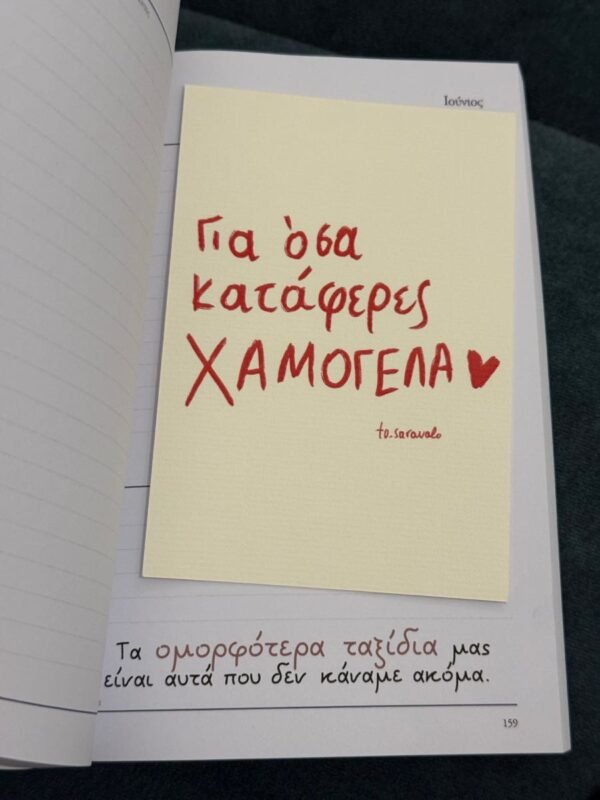 Ιούνιος
Για όσα
κατάφερες
ΧΑΜΟΓΕΛΑ♥
to_saravalo
Τα ομορφότερα ταξίδια μας
είναι αυτά που δεν κάναμε ακόμα.
159